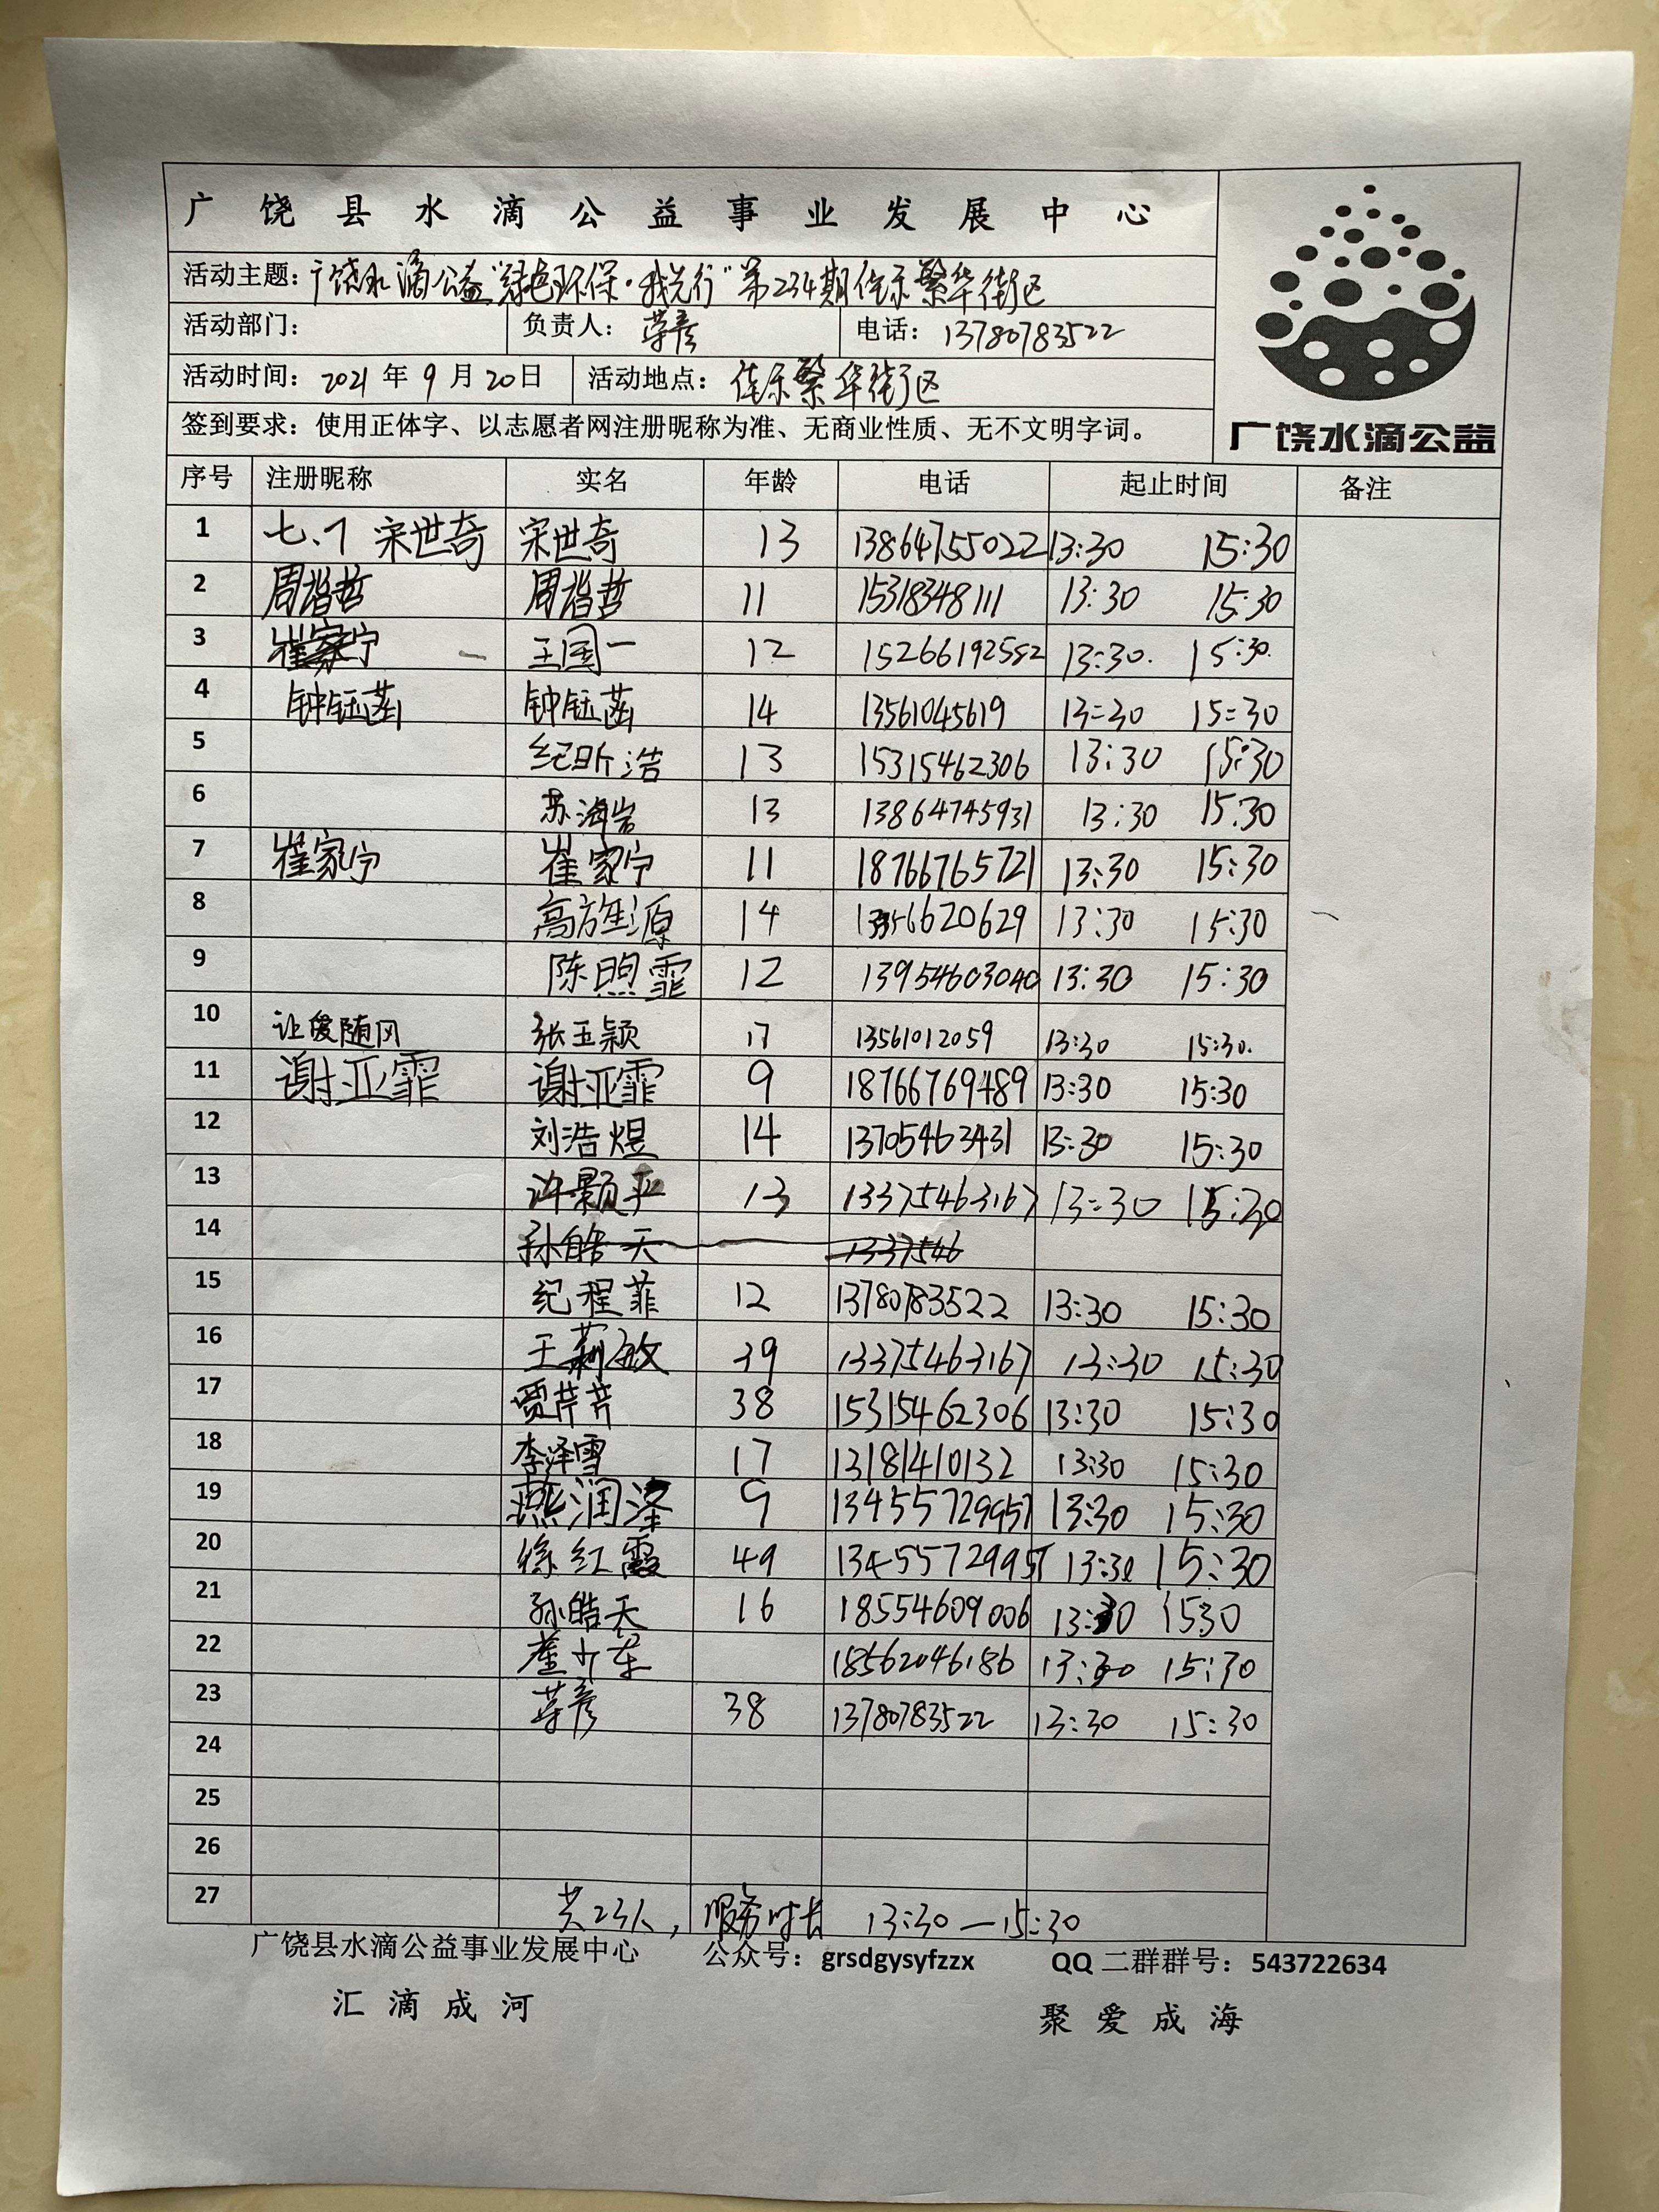 广饶县水滴公益事业发展中心
活动主题：广饶水滴公益"绿色环保·我先行"第234期佳乐繁华街区
活动部门： 负责人： 电话：13780783522
活动时间：2021年9月20日 活动地点：佳乐繁华街区
签到要求：使用正体字、以志愿者网注册昵称为准、无商业性质、无不文明字词。
广饶水滴公益
序号 注册昵称 实名 年龄 电话 起止时间 备注
1 七.1 宋世奇 宋世奇 13 13864755022 13:30 15:30
2 周楷哲 周楷哲 11 15318348111 13:30 15:30
3 崔家宁 王国一 12 15266192582 13:30. 15:30.
4 钟钰菡 钟钰菡 14 13561045619 13:30 15:30
5 纪昕浩 13 15315462306 13:30 15:30
6 苏海岩 13 13864745931 13:30 15:30
7 崔家宁 崔家宁 11 18766765721 13:30 15:30
8 高源 14 13:30 15:30
9 陈煦霏 12 13954603040 13:30 15:30
10 让爱随风 张玉颖 17 13561012059 13:30 15:30.
11 谢亚霏 谢亚霏 9 18766769489 13:30 15:30
12 刘浩煜 14 13705463431 13:30 15:30
13 许颢 13 13375463167 13:30 15:30
14 孙皓天 1337546
15 纪程菲 12 13780783522 13:30 15:30
16 王莉敏 39 13375463167 13:30 15:30
17 贾芹芹 38 15315462306 13:30 15:30
18 李泽雪 17 13181410132 13:30 15:30
19 燕润泽 9 13455729957 13:30 15:30
20 徐红霞 49 13455729957 13:30 15:30
21 孙皓天 16 18554609006 13:30 1530
22 18562046186 13:30 15:30
23 38 13780783522 13:30 15:30
24
25
26
27 共23人，服务时长 13:30—15:30
广饶县水滴公益事业发展中心 公众号：grsdgysyfzzx QQ二群群号：543722634
汇滴成河 聚爱成海